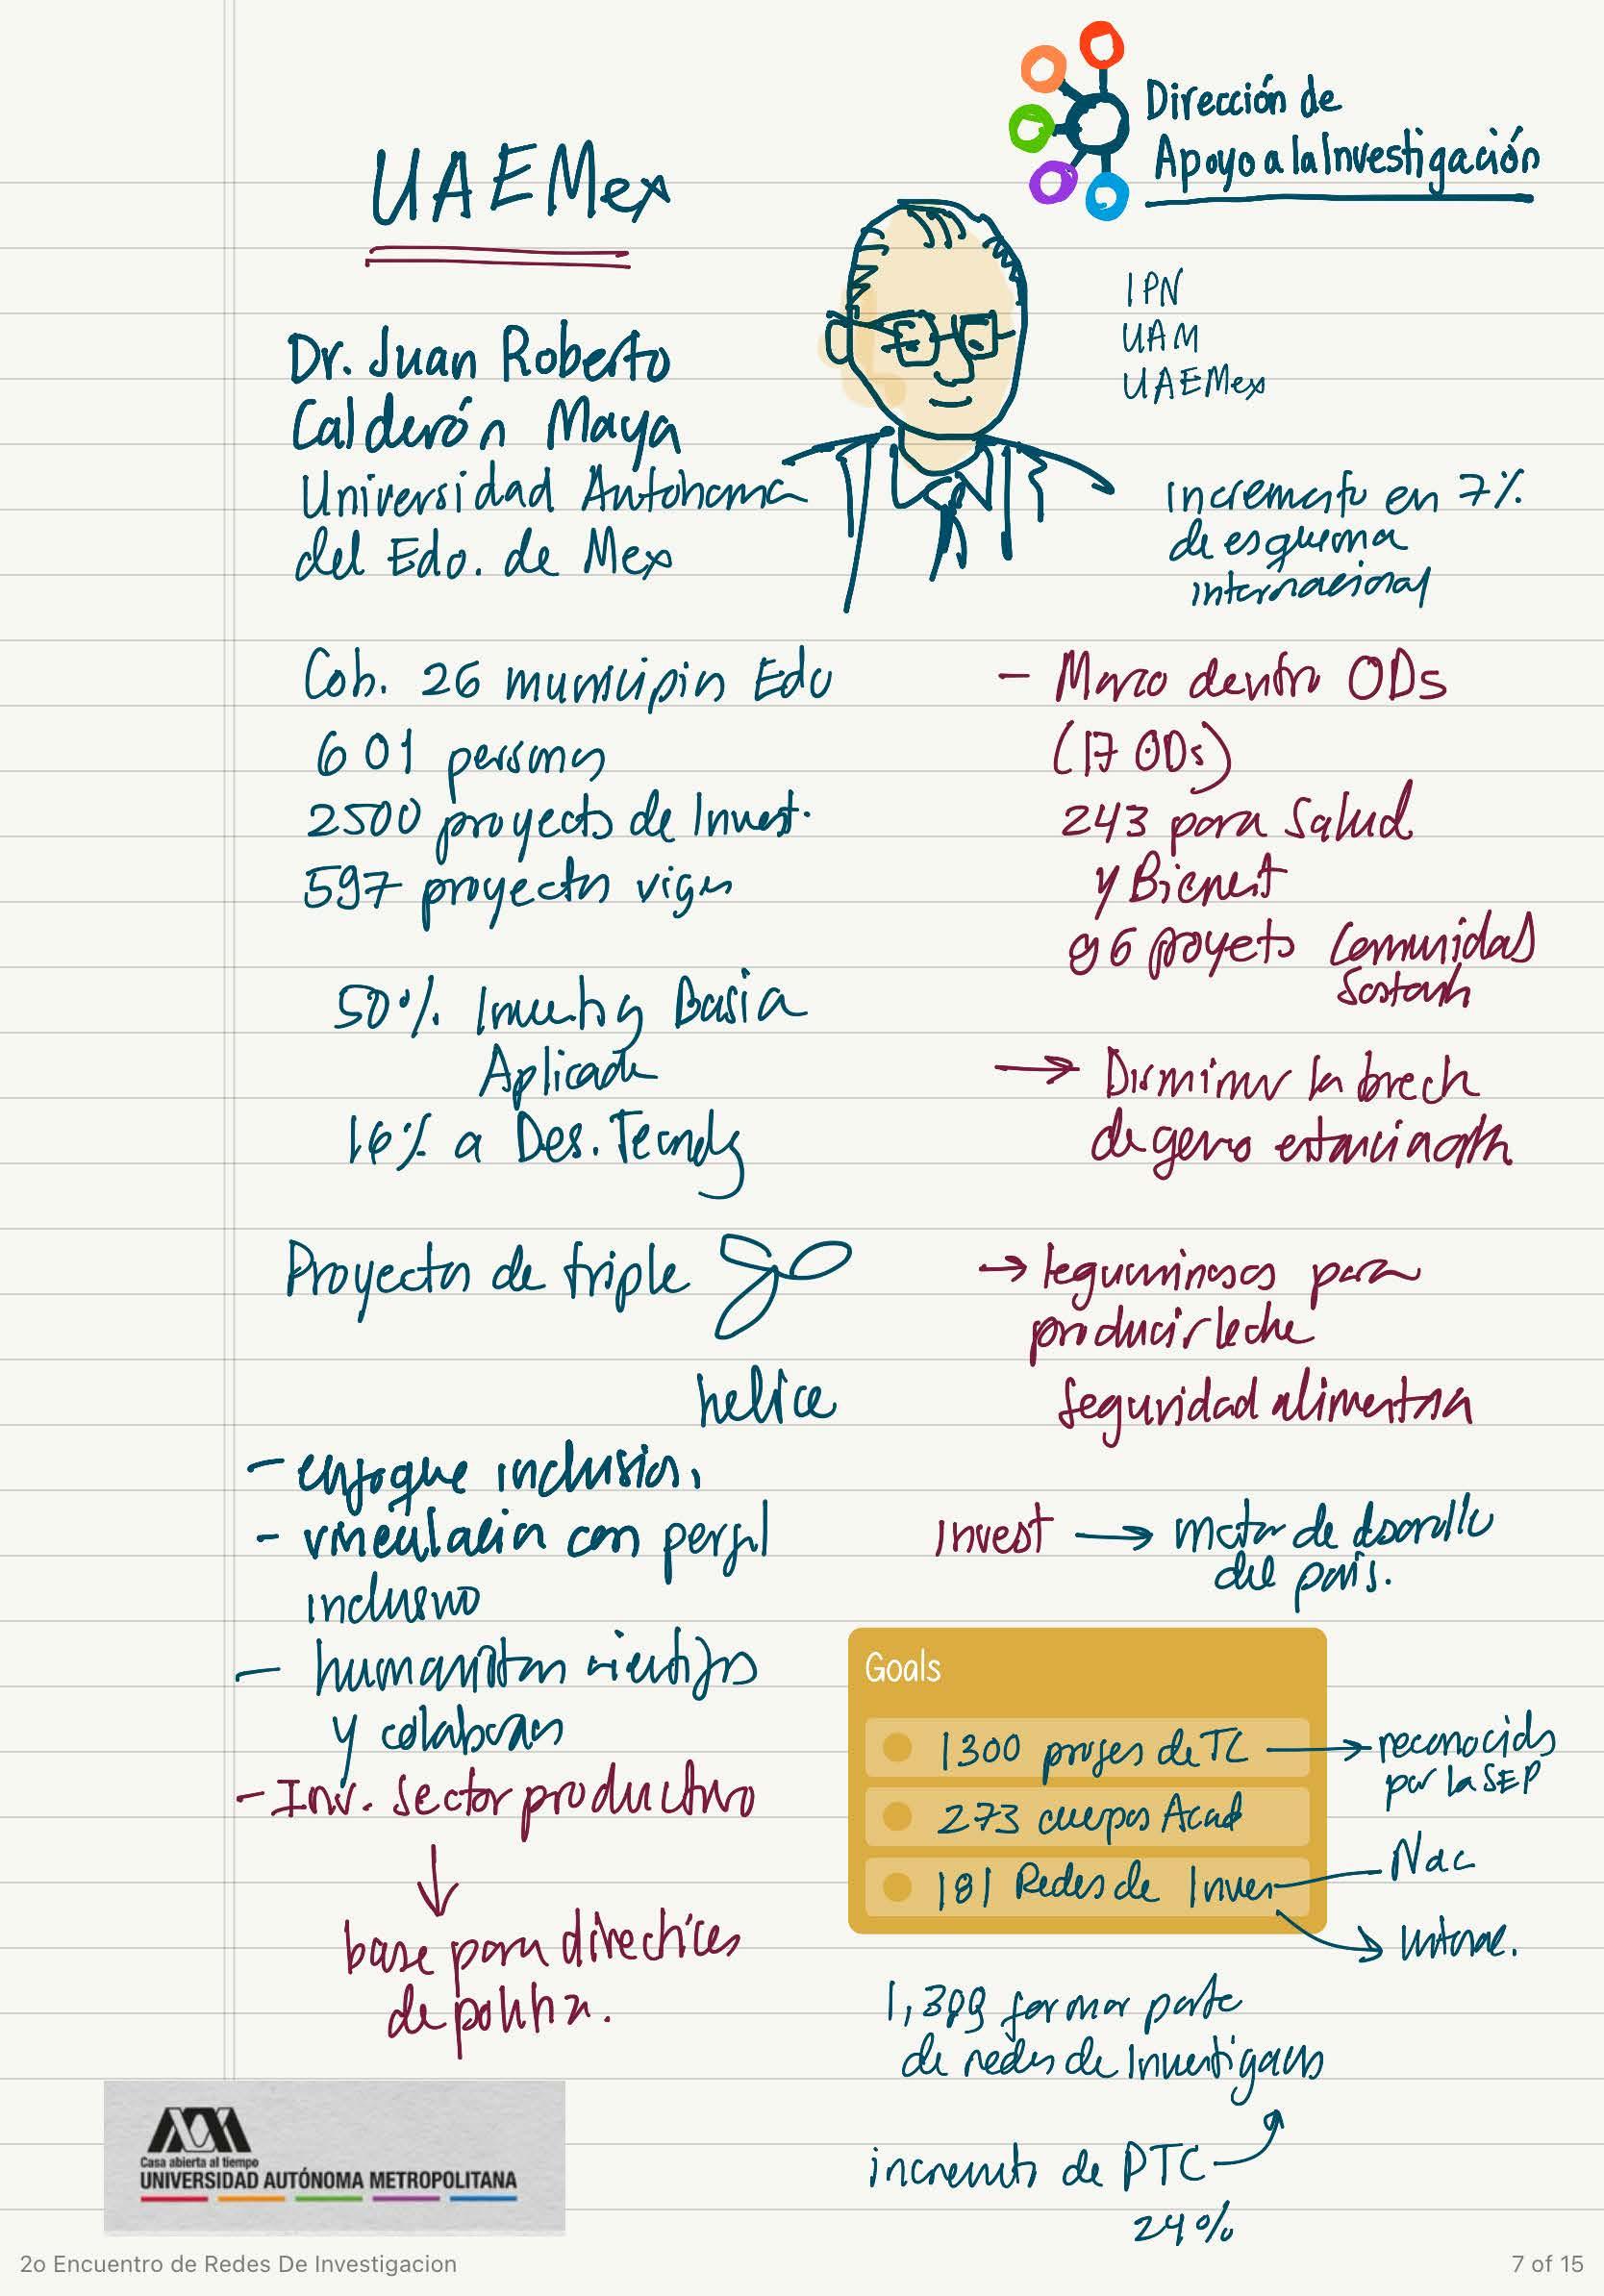 Dirección de
Apoyo a la Investigación
UAEMex
IPN
UAM
UAEMex
Dr. Juan Roberto
Calderón Maya
Universidad Autónoma
del Edo. de Mex
Incremento en 7%
de esquema
internacional
Cob. 26 municipios Edo
601 personas
2500 proyectos de Invest.
597 proyectos vigen
50% Investig Basica
Aplicada
16% a Des. Tecnolg
Proyectos de triple
helice
- enfoque inclusion.
- vinculación con perfil
inclusivo
- humanistas científicos
y colaboran
- Inv. Sector productivo
base para directrices
de política.
- Marco dentro ODs
(17 ODs)
243 para Salud
y Bienest
96 proyects Comunidas
Sostanb
→ Disminur la brech
de genro
→ leguminosas para
producir leche
Seguridad alimentria
Invest → motor de desarollo
del país.
Goals
1300 profes de TC → reconocids
por la SEP
273 cuerpos Acad
181 Redes de Inves
Nac
Internac.
1,399 formar parte
de redes de Investigacns
incremnto de PTC
24%
Casa abierta al tiempo
UNIVERSIDAD AUTÓNOMA METROPOLITANA
2o Encuentro de Redes De Investigacion
7 of 15